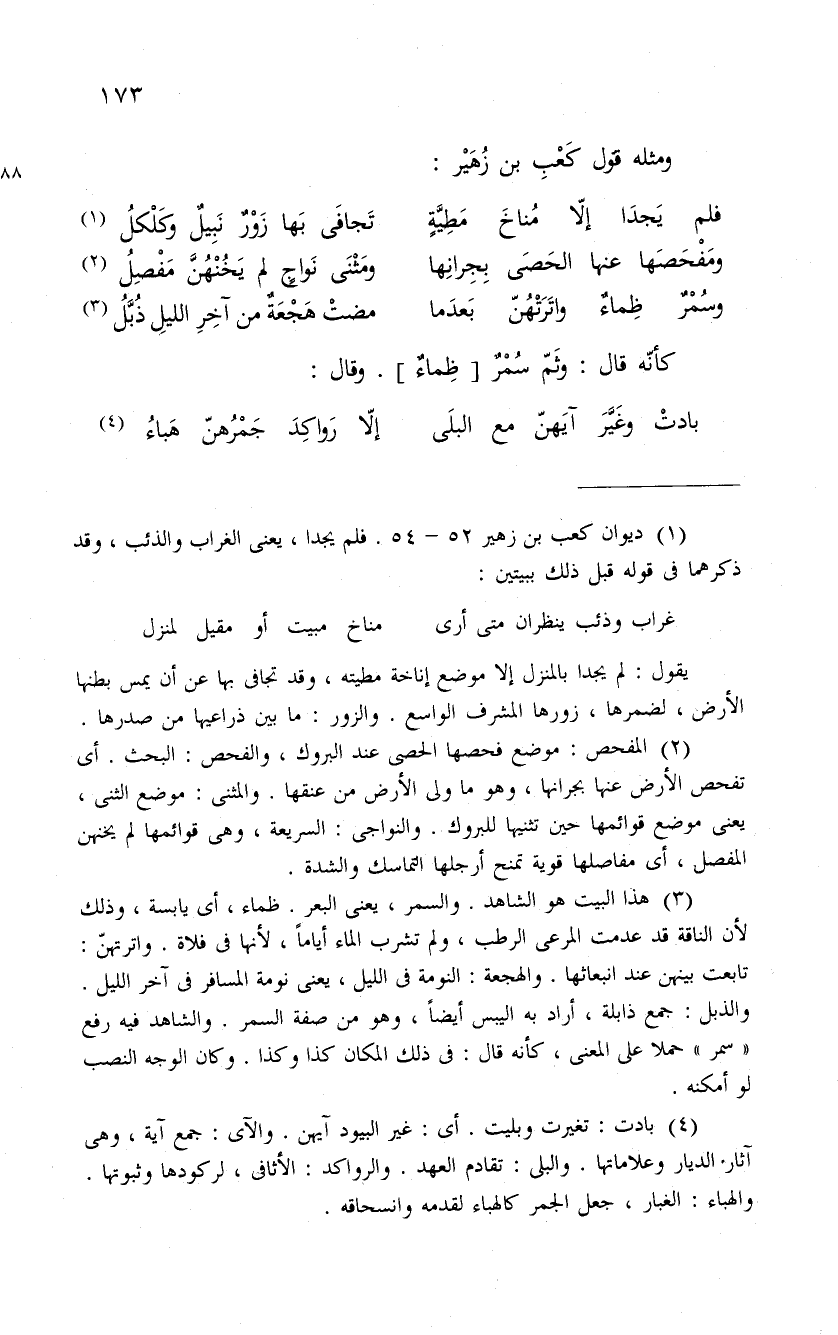 ١٧٣
ومثله قول كَعْبِ بن زُهَيْر :
٨٨
فلم يَجدَا إلّا مُناخَ مَطِيَّةٍ تَجافَى بَها زَوْرٌ نَبِيلٌ وكَلْكلُ (١)
ومَفْحَصَها عنها الحَصَى بِجِرانِها ومَثْنَى نَواجٍ لم يَخُنْهُنَّ مَفْصِلُ (٢)
وسُمْرٌ ظِماءٌ واتَرَتْهُنّ بَعدَما مضتْ هَجْعَةٌ من آخِرِ الليلِ ذُبَّلُ (٣)
كأنّه قال : وثَمّ سُمْرٌ [ ظِماءٌ ] . وقال :
بادتْ وغَيَّرَ آيَهنّ مع البلَى إلّا رَواكِدَ جَمْرُهنّ هَباءُ (٤)
(١) ديوان كعب بن زهير ٥٢ – ٥٤ . فلم يجدا ، يعنى الغراب والذئب ، وقد
ذكرهما فى قوله قبل ذلك ببيتين :
غراب وذئب ينظران متى أرى مناخ مبيت أو مقيل لمنزل
يقول : لم يجدا بالمنزل إلا موضع إناخة مطيته ، وقد تجافى بها عن أن يمس بطنها
الأرض ، لضمرها ، زورها المشرف الواسع . والزور : ما بين ذراعيها من صدرها .
(٢) المفحص : موضع فحصها الحصى عند البروك ، والفحص : البحث . أى
تفحص الأرض عنها بجرانها ، وهو ما ولى الأرض من عنقها . والمثنى : موضع الثنى ،
يعنى موضع قوائمها حين تثنيها للبروك . والنواجى : السريعة ، وهى قوائمها لم يخنهن
المفصل ، أى مفاصلها قوية تمنح أرجلها التماسك والشدة .
(٣) هذا البيت هو الشاهد . والسمر ، يعنى البعر . ظماء ، أى يابسة ، وذلك
لأن الناقة قد عدمت المرعى الرطب ، ولم تشرب الماء أياماً ، لأنها فى فلاة . واترتهنّ :
تابعت بينهن عند انبعاثها . والهجعة : النومة فى الليل ، يعنى نومة المسافر فى آخر الليل .
والذبل : جمع ذابلة ، أراد به اليبس أيضاً ، وهو من صفة السمر . والشاهد فيه رفع
« سمر » حملا على المعنى ، كأنه قال : فى ذلك المكان كذا وكذا . وكان الوجه النصب
لو أمكنه .
(٤) بادت : تغيرت وبليت . أى : غير البيود آيهن . والآى : جمع آية ، وهى
آثار الديار وعلاماتها . والبلى : تقادم العهد . والرواكد : الأثافى ، لركودها وثبوتها .
والهباء : الغبار ، جعل الجمر كالهباء لقدمه وانسحاقه .